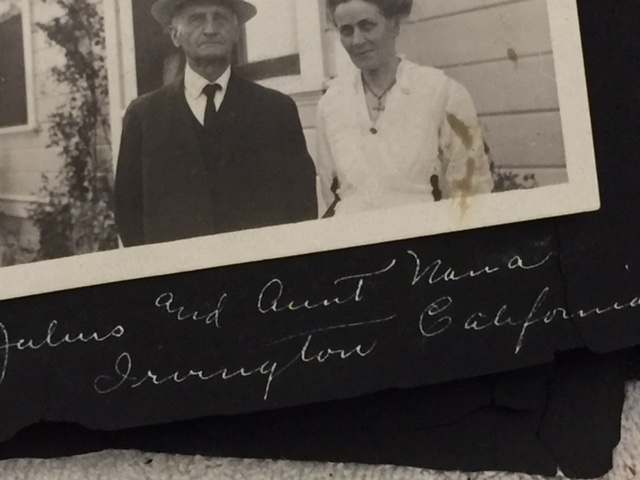 Julius and Aunt Nana
Irvington California